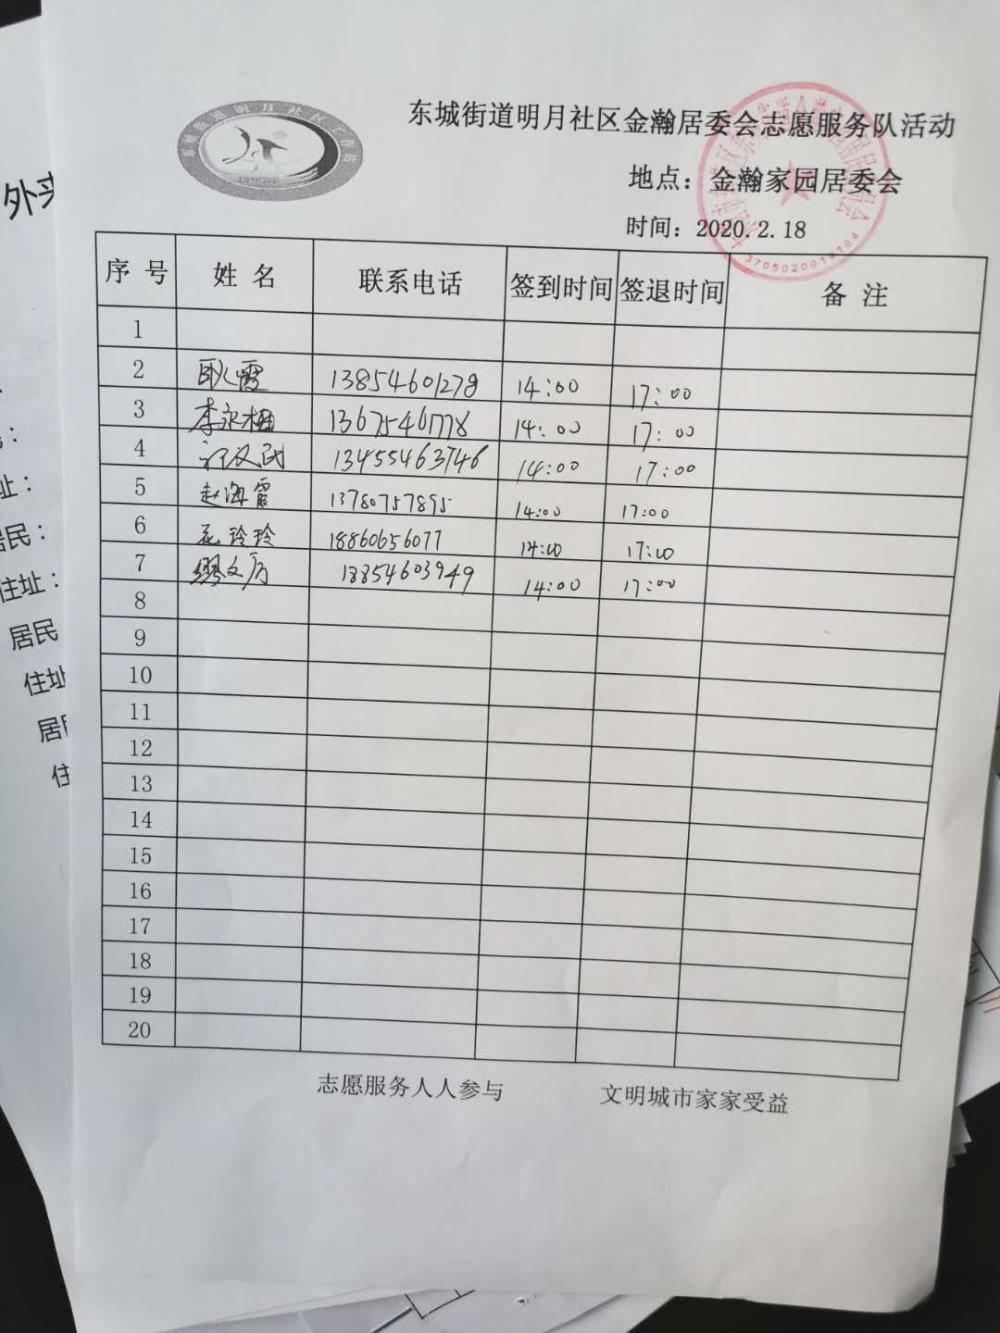 东城街道明月社区金瀚居委会志愿服务队活动
地点：金瀚家园居委会
时间：2020.2.18
序号 姓名 联系电话 签到时间 签退时间 备注
1
2 耿霞 13854601279 14:00 17:00
3 李永梅 13675461778 14:00 17:00
4 汉民 13455463746 14:00 17:00
5 赵海霞 13780757895 14:00 17:00
6 玲玲 18860656077 14:00 17:00
7 缪文房 18854603949 14:00 17:00
8
9
10
11
12
13
14
15
16
17
18
19
20
志愿服务人人参与 文明城市家家受益
外来
址：
居民：
住址：
居民
住址
居民
住